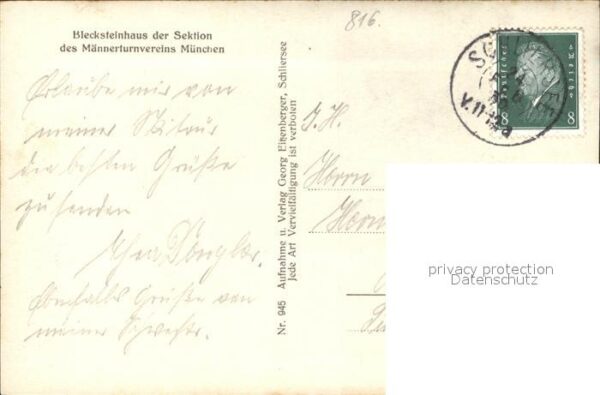 816.
Blecksteinhaus der Sektion
des Männerturnvereins München
Erlaube mir von
meiner Skitour
die besten Grüße
zu senden
Ebenfalls Grüße von
meiner Schwester.
Nr. 945 Aufnahme u. Verlag Georg Eitzenberger, Schliersee
Jede Art Vervielfältigung ist verboten
I. H.
Herrn
8 8
privacy protection
Datenschutz